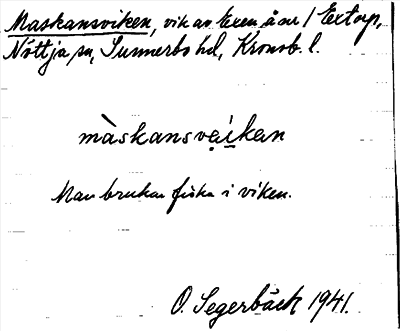 Maskansviken, vik av Exen å ... / Extorp,
Nöttja sn, Sunnerbo hd, Kronob. l.
màskansvẹi̠kan
Man brukar fiska i viken.
O. Segerbäck 1941.